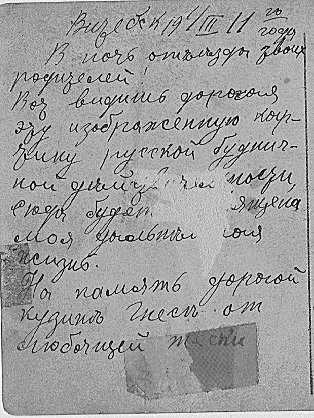 Витебск 19 4/III 11 го года
В ночь отъезда твоих
родителей!
Вот видишь дорогая
эту изображенную кар-
тину русской буднич-
ной действительности,
Сюда буде
моя дальн
жизнь.
На память дорогой
кузинѣ Гнесѣ от
любящей